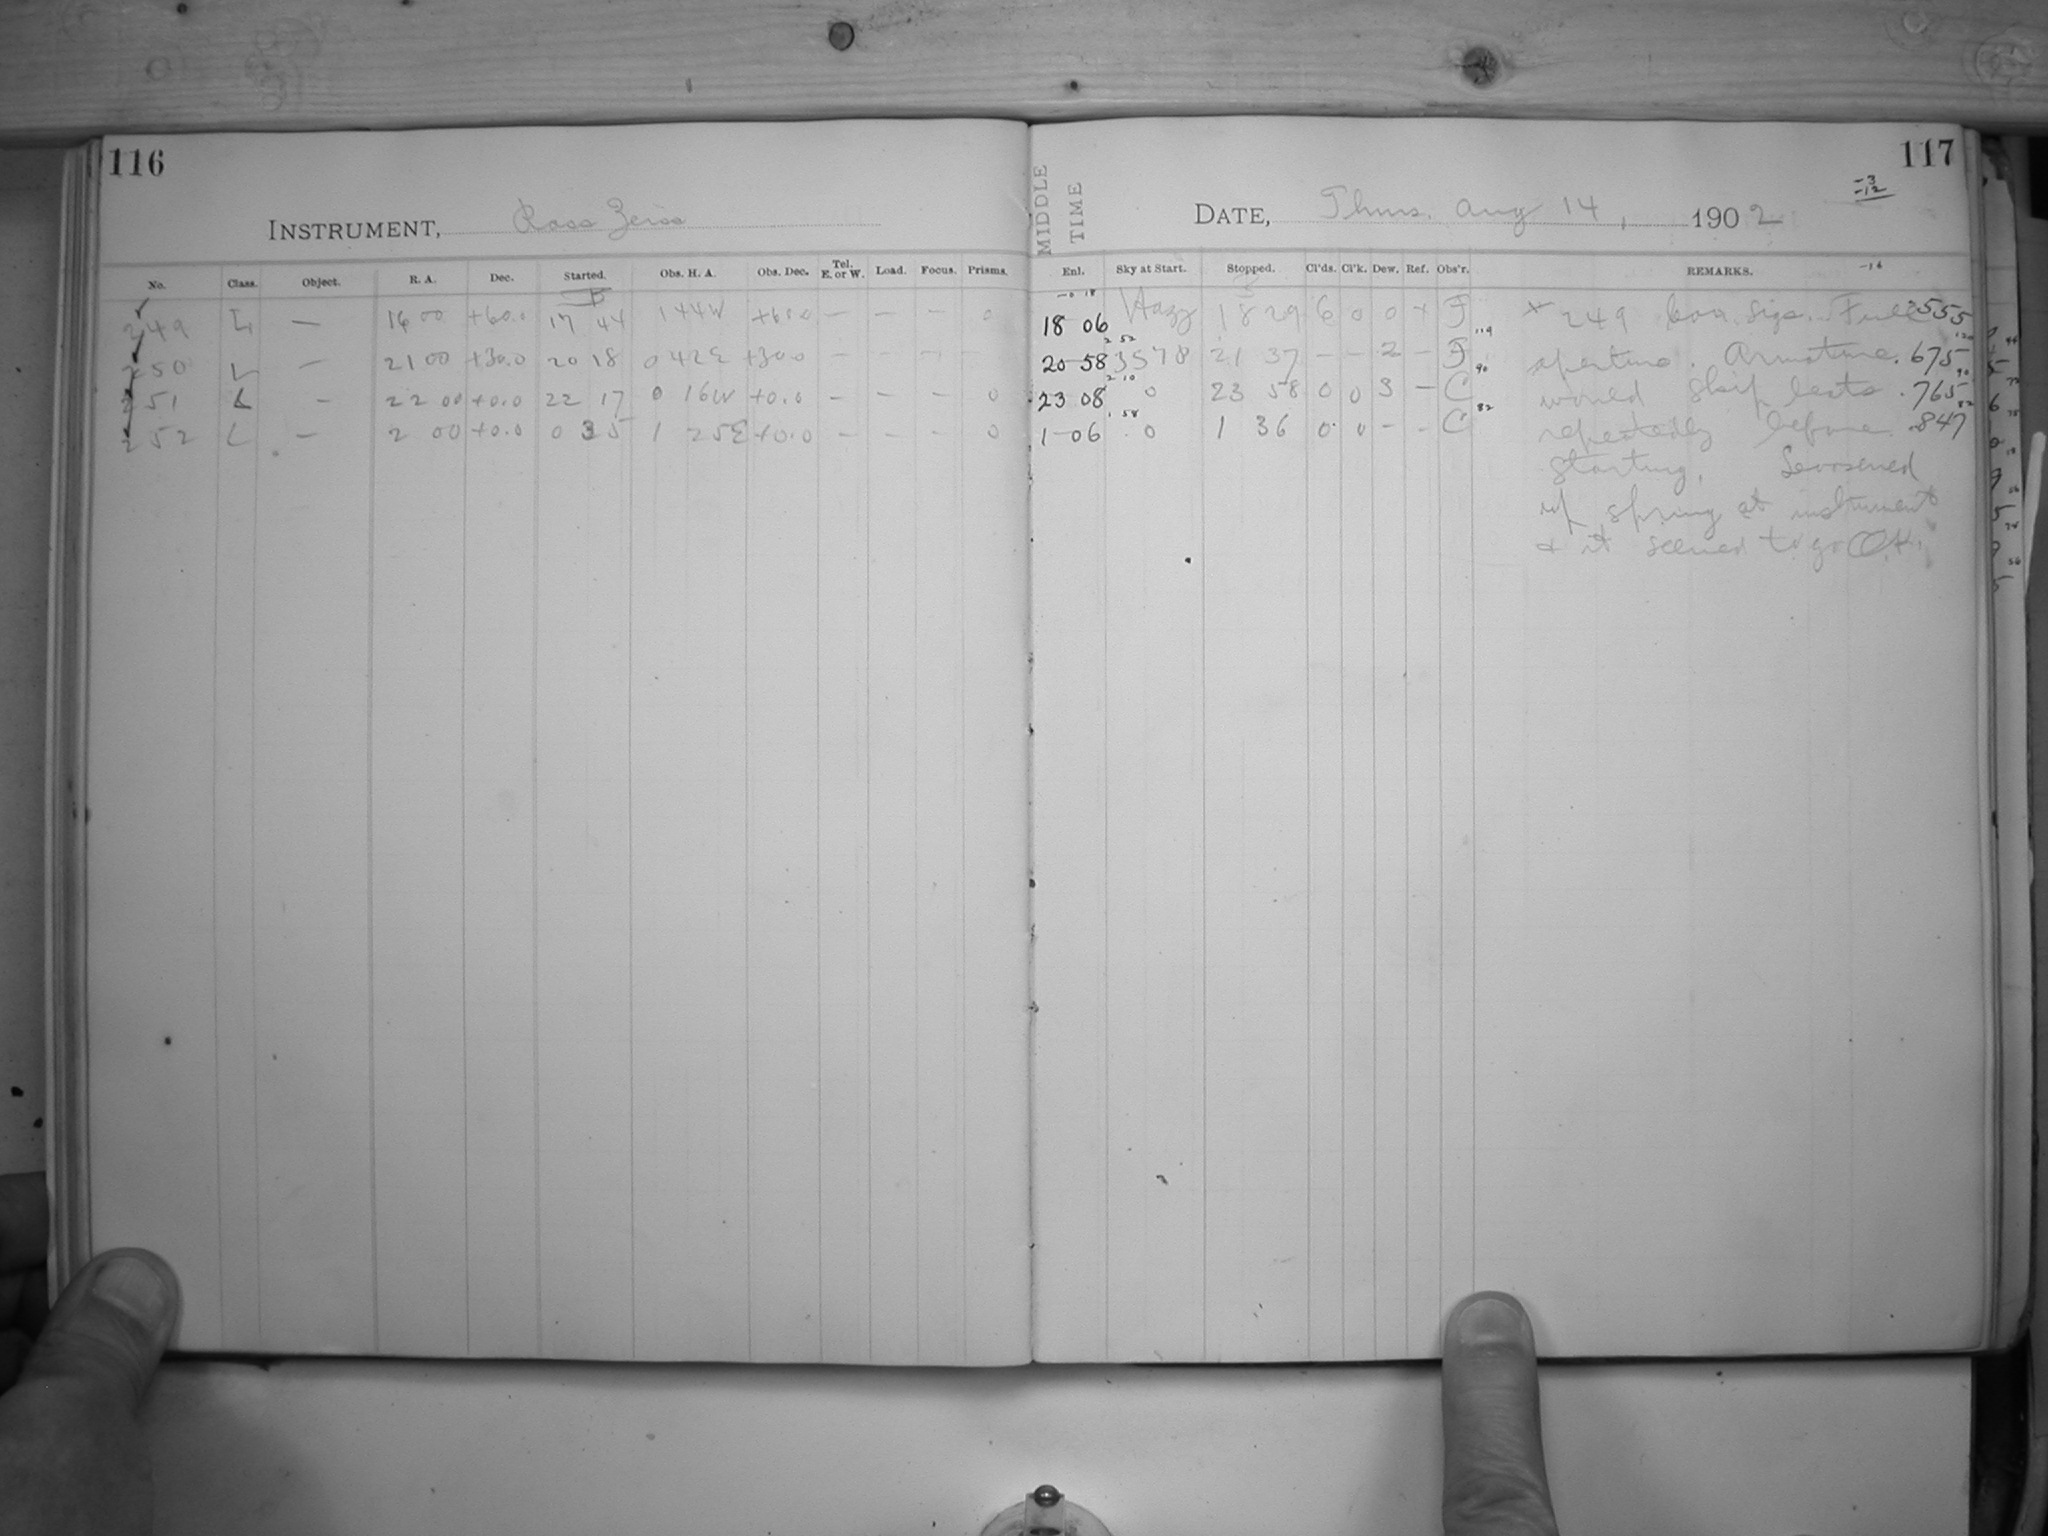 116
117
-3
-12
INSTRUMENT, Ross Zeiss
MIDDLE TIME
DATE, Thurs. Aug 14, 1902
No. Class. Object. R. A. Dec. Started. Obs. H. A. Obs. Dec. Tel. E. or W. Load. Focus. Prisms. Enl. Sky at Start. Stopped. Cl'ds. Cl'k. Dew. Ref. Obs'r. REMARKS. -16
249 L — 16 00 +60.0 17 44 1 44W +60.0 — — — 0 18 06 Hazy 18 29 6 0 0 + F 119 * 249 Full .555
250 L — 21 00 +30.0 20 18 0 42E +30.0 — — — 20 58 3578 21 37 — — 2 — F 90 aperture. Armature .675
251 L — 22 00 +0.0 22 17 0 16W +0.0 — — — 0 23 08 0 23 58 0 0 3 — C 82 would skip beats .765
252 L — 2 00 +0.0 0 35 1 25E +0.0 — — — 0 1 06 0 1 36 0 0 - - C repeatedly before .847
starting. Loosened
up spring at instrument
& it seemed to go OK.